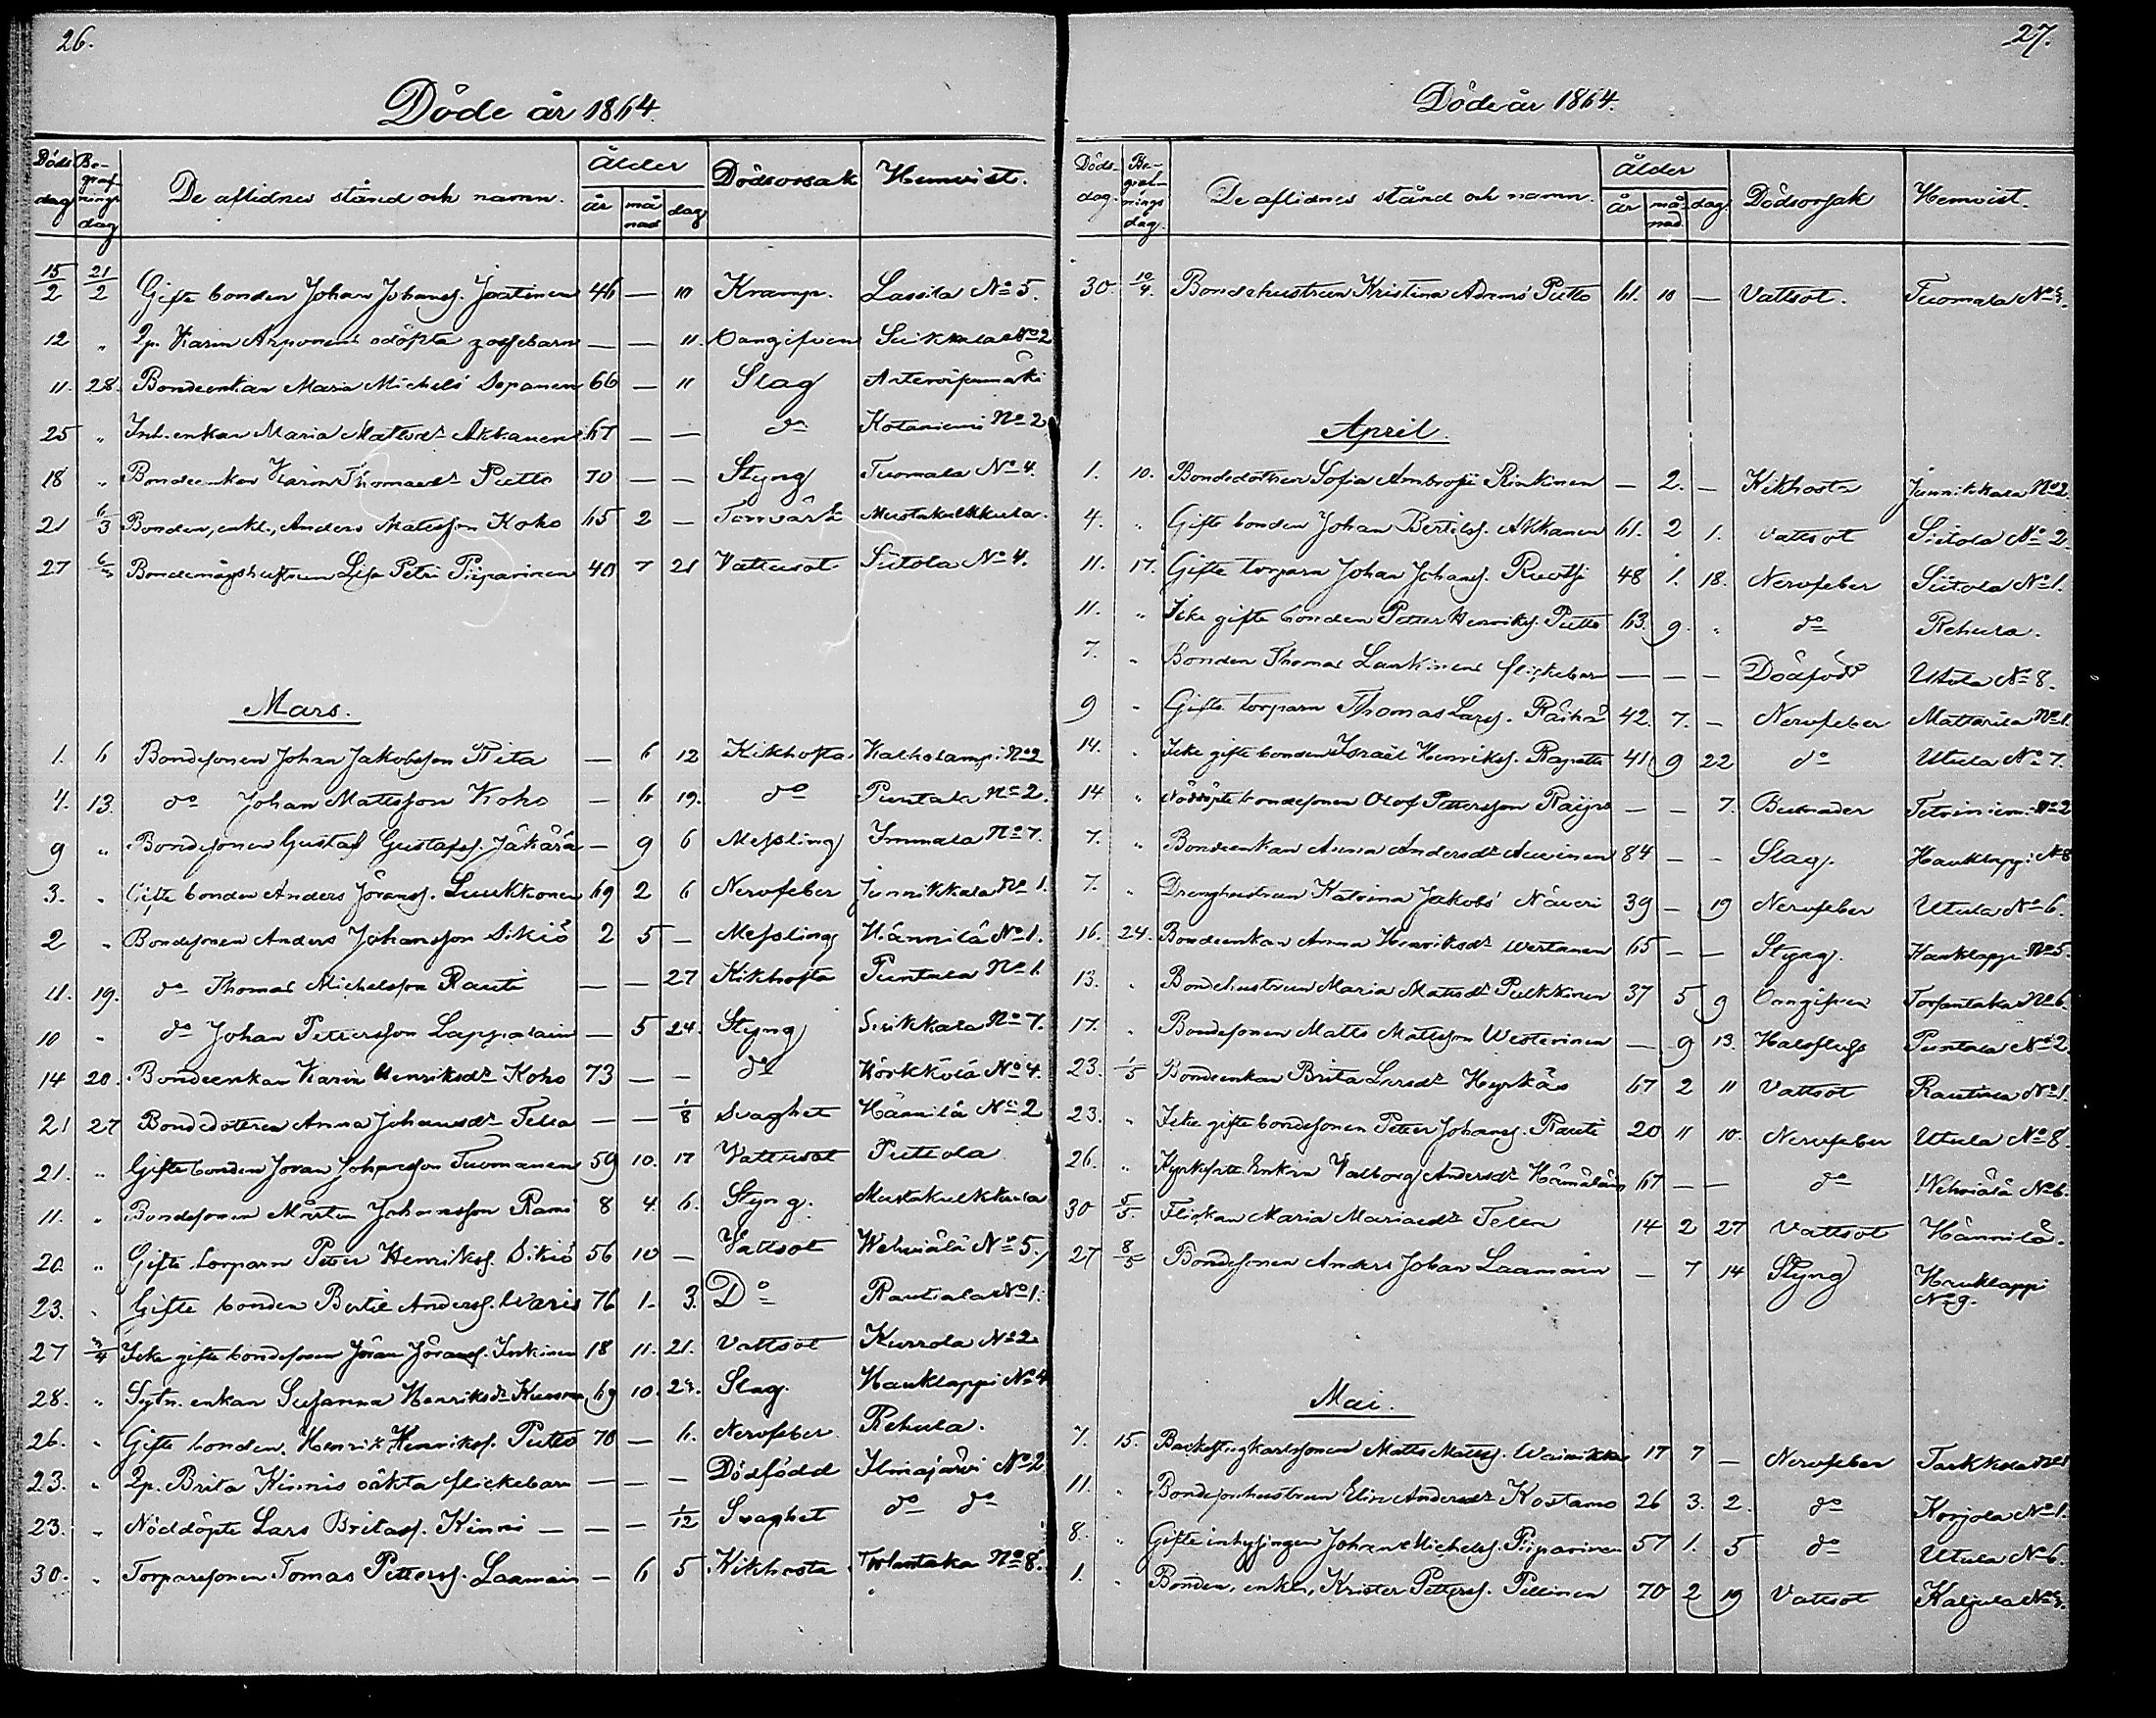 26.
Döde år 1864.
Döds dag | Begrafnings dag | De aflidnes stånd och namn. | Ålder år | månad | dag | Dödsorsak | Hemvist.
15/2 21/2 Gifte bonden Johan Johansſ. Jaatinen 46 — 10 Kramp. Lassila No 5.
12 " Qp. Karin Arponens odöpta gossebarn — — 11. Oangifven Suikkala No 2
11. 28. Bondeenkan Maria Michels Sopanen 66 — 11 Slag
25 " Inh. enkan Maria Matsdr Akkanen 67 — — do Kotaniemi No 2
18 " Bondeenkan Karin Thomasdr Putto 70 — — Styng Tuomala No 4.
21 6/3 Bonden, enkl., Anders Matsson Koho 65 2 — Tornvärk Mustakulkkula.
27 6/3 Bondemågshustrun Lisa Petri Piiparinen 40 7 21 Vattusot Siitola No 4.
Mars.
1. 6 Bondesonen Johan Jakobsson Rita — 6 12 Kikhosta Kalholampi No 2
4. 13. do Johan Mattsson Koho — 6 19. do Puntala No 2.
9 " Bondesonen Gustaf Gustafsſ. Jäkärä — 9 6 Messling Immala No 7.
3. " Gifte bonden Anders Jöransſ. Luukkonen 69 2 6 Nervfeber Junnikkala No 1.
2 " Bondesonen Anders Johansson Sikiö 2 5 — Messling Hännilä No 1.
11. 19. do Thomas Michelsson Rauti — — 27 Kikhosta Puntala No 1.
10 " do Johan Pettersson Lappalain — 5 24. Styng Siikkala No 7.
14 20. Bondeenkan Karin Henriksdr Koho 73 — — do Körkkölä No 4.
21 27 Bondedottern Anna Johansdr Tella — — 1/8 Svaghet Hännilä No 2
21. " Gifte bonden Jöran Johansson Tuomanen 59 10. 17 Vattusot Puttola
11. " Bondesonen Mårten Johansson Rami 8 4. 6. Styng. Mustakulkkula
20. " Gifte torparn Petter Henriksſ. Sikiö 56 10 — Vattsot Wehviälä No 5.
23. " Gifte bonden Bertil Andersſ. Waris 76 1. 3. Do Rautiala No 1.
27 3/4 Icke gifte bondesonen Jöran Jöransſ. Inkinen 18 11. 21. Vattsot Kurrola No 2
28. " Sytn. enkan Susanna Henriksdr 69 10. Slag. Hauklappi No 4
26. " Gifte bonden Henrik Henriksſ. Putto 70 — 6. Nervfeber Rehula.
23. " Qp. Brita Kinnis oäkta flickebarn — — — Dödfödd Ilmajärvi No 2
23. " Nöddöpte Lars Britasſ. Kinni — — — 1/12 Svaghet do do
30. " Torparesonen Tomas Pettersſ. Laamain — 6 5 Kikhosta Torlantaka No 8.
27.
Döde år 1864.
Döds-dag. | Begrafnings dag. | De aflidnes stånd och namn. | Ålder år | månad | dag. | Dödsorsak | Hemvist.
30. 10/4. Bondehustrun Kristina Adams Putto 61. 10 — Vattsot. Tuomala No
April.
1. 10. Bondedottern Sofia Ambrosii Rinkinen — 2. — Kikhosta Junnikkala No 2.
4. " Gifte bonden Johan Bertilsſ. Akkanen 61. 2 1. Vattsot Siitola No 2.
11. 17. Gifte torparn Johan Johansſ. Ruotsi 48 1. 18. Nervfeber Siitola No 1.
11. " Icke gifte bonden Petter Henriksſ. Putto 63. 9. " do Rehula.
7. " Bonden Thomas Lankinens flickebarn — — — Dödfödd Utula No 8.
9 " Gifte torparn Thomas Larsſ. Räihä 42. 7. — Nervfeber Mattila No 1.
14. " Icke gifte bonden Israël Henriksſ. Rapatti 41 9 22 do Utula No 7.
14 " Nöddöpte bondesonen Olof Pettersson — — 7. Bulnader No 2
7. " Bondeenkan Anna Andersdr Auvinen 84 — — Slag. Hauklappi No 8
7. " Drenghustrun Katrina Jakobs Näveri 39 — 19 Nervfeber Utula No 6.
16. 24. Bondeenkan Anna Henriksdr Wertanen 65 — — Styng. Hauklappi No 5.
13. " Bondehustrun Maria Matsdr Pulkkinen 37 5 9 Oangifven Torsantaka No 6.
17. " Bondesonen Matts Mattsson Westerinen — 9 13. Halsfluss Puntala No 2.
23. 1/5 Bondeenkan Brita Larsdr Hyrkäs 67 2 11 Vattsot Rautiala No 1.
23. " Icke gifte bondesonen Petter Johansſ. Rauti 20 11 10. Nervfeber Utula No 8.
26. " Enkan Valborg Andersdr Hämäläin 67 — — do Wehviälä No 6.
30 5/5. Flickan Maria Mariaedr Tella 14 2 27 Vattsot Hännilä.
27 8/5 Bondesonen Anders Johan Laamain — 7 14 Styng Hauklappi No 9.
Mai.
7. 15. Backstugkarlssonen Matts Mattsſ. Wainikka 17 7 — Nervfeber Tarkkola No 1
11. " Bondesonhustrun Elin Andersdr Kostamo 26 3. 2. do Korjola No 1.
8. " Gifte inhysingen Johan Michelsſ. Piiparinen 57 1. 5 do Utula No 6.
1. " Bonden, enkln, Krister Pettersſ. Pellinen 70 2 19 Vattsot Kaljula No